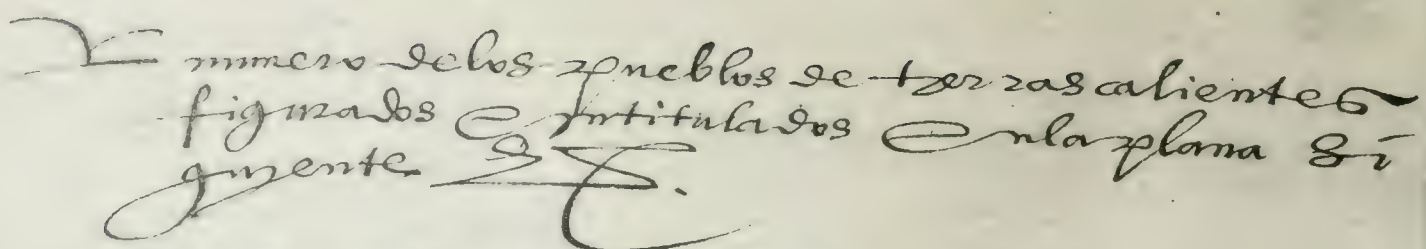 numero delos pueblos de tierras calientes
figurados e yntitulados en la plana si
guiente